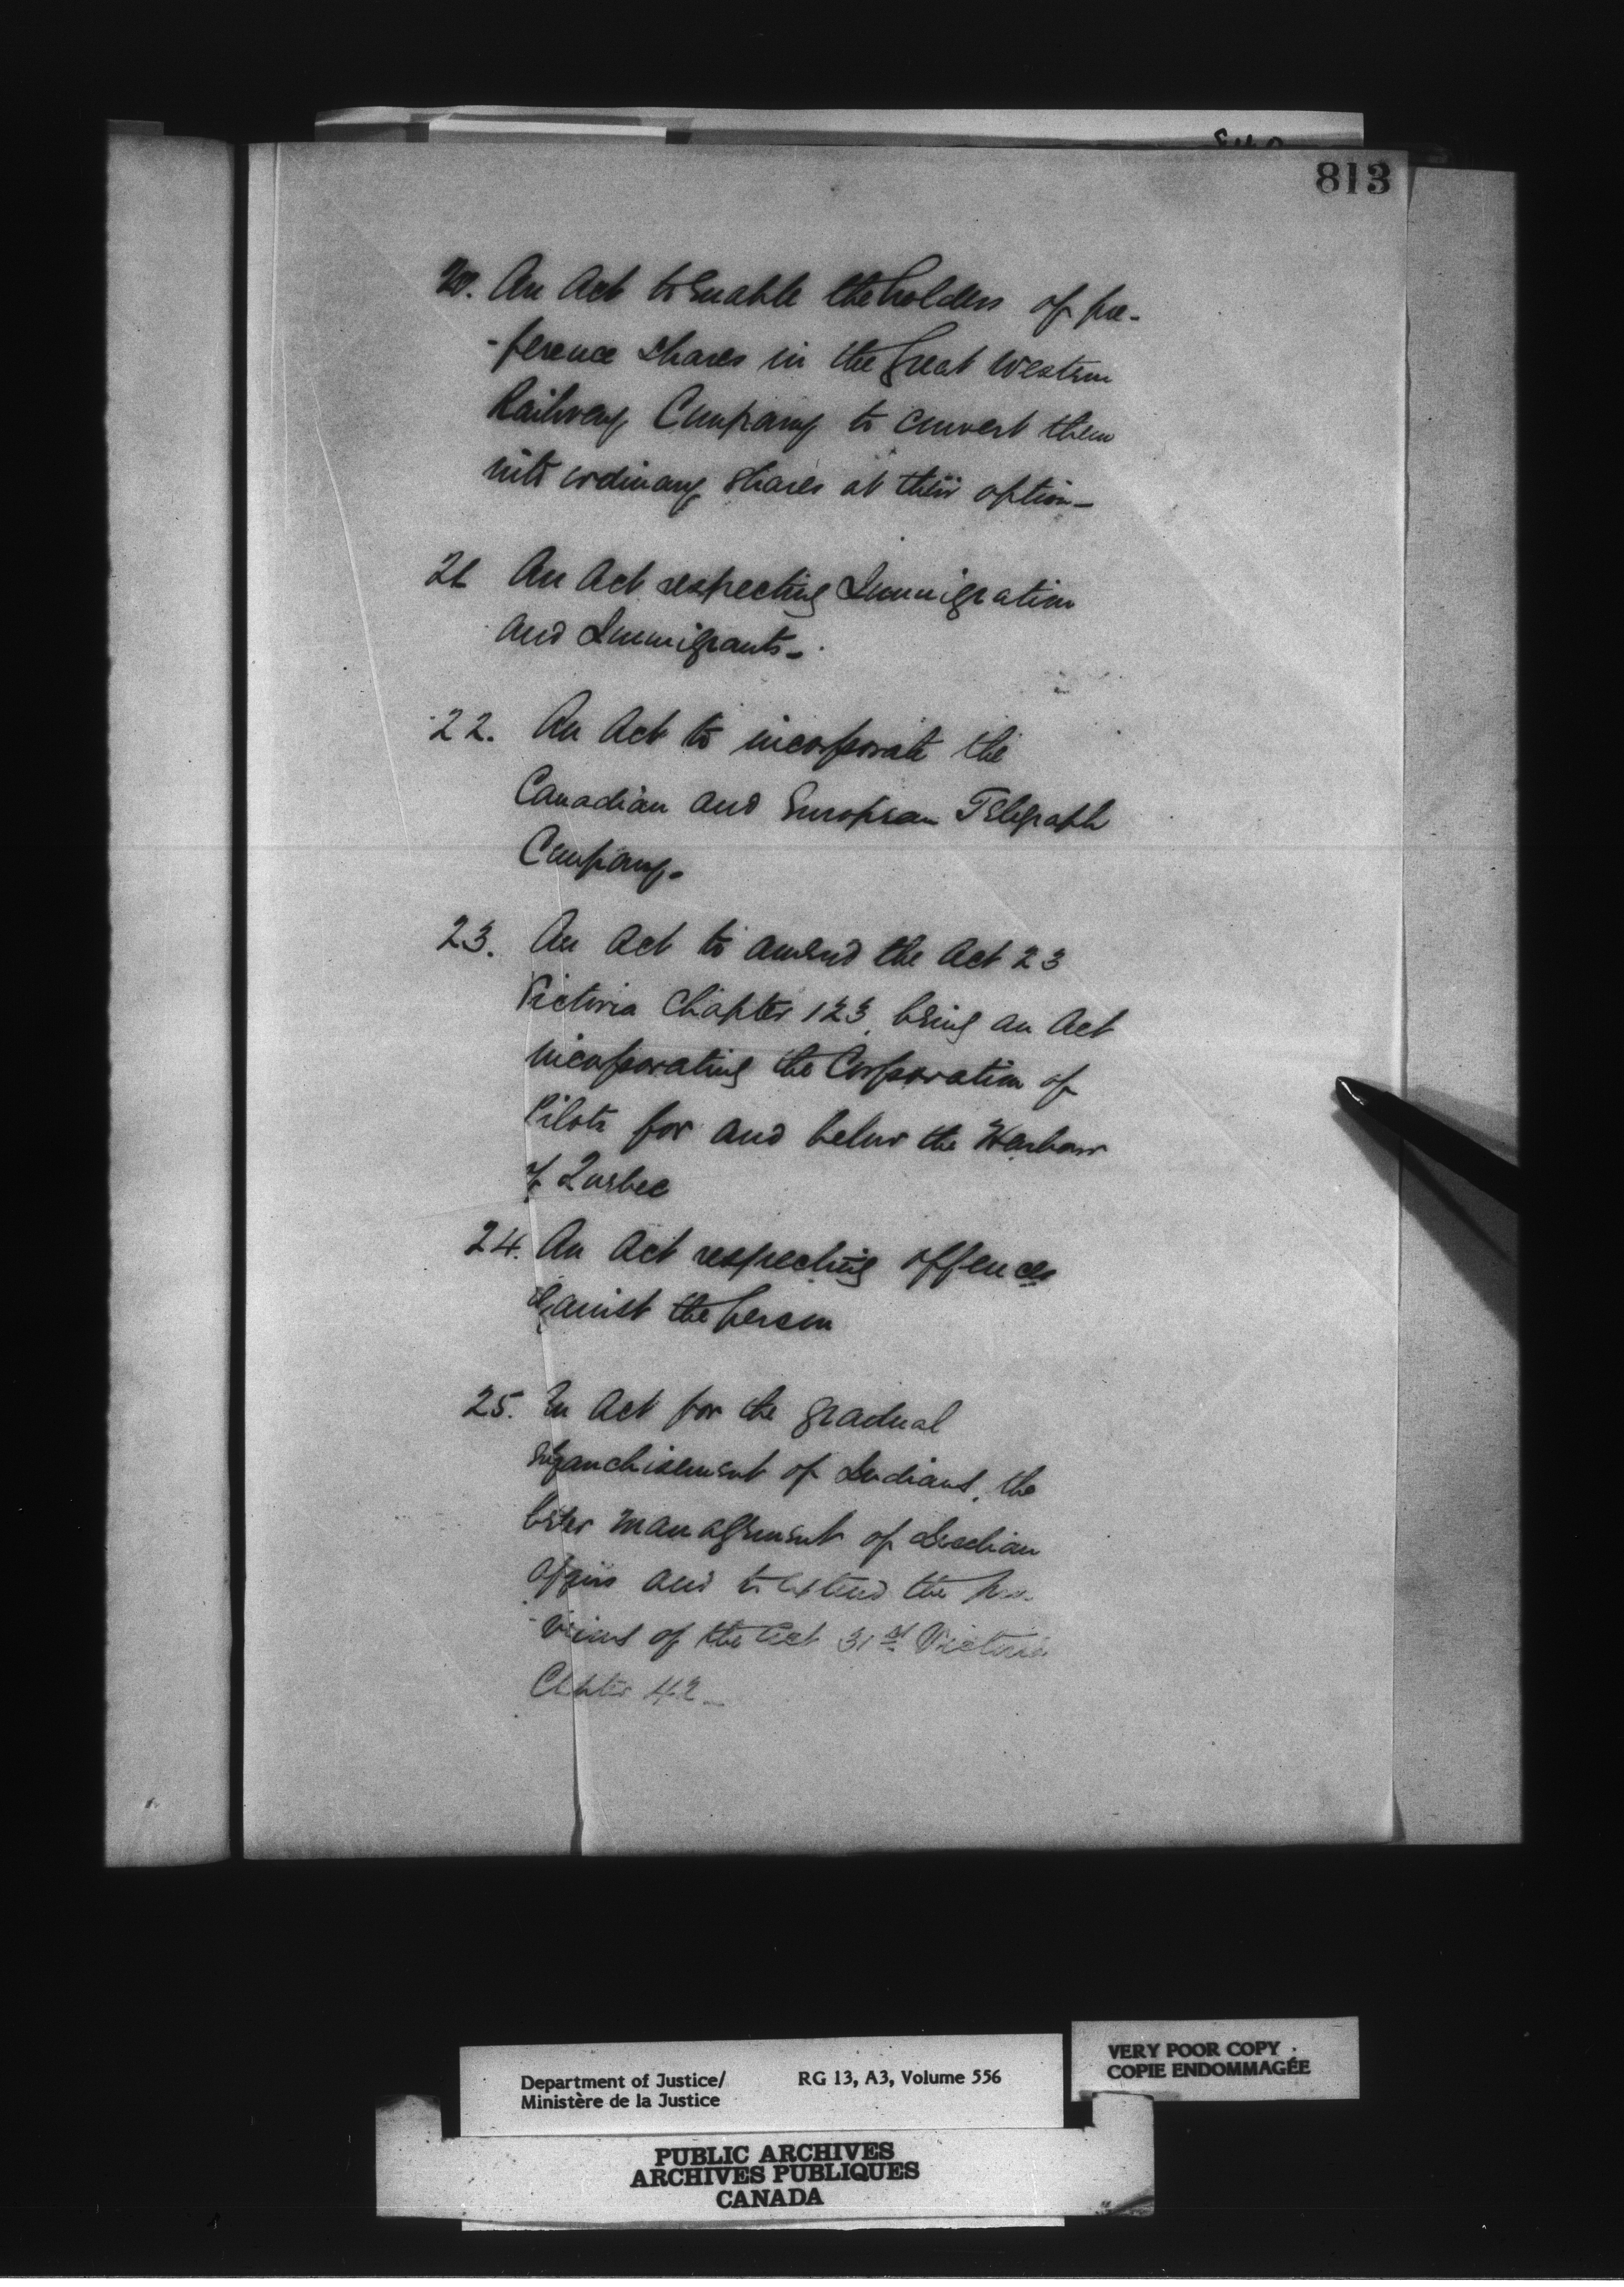 813
20. An Act to Enable the holders of pre-
-ference shares in the Great Western
Railway Company to convert them
into ordinary shares at their option_
21 An Act respecting Immigration
and Immigrants_
22. An Act to incorporate the
Canadian and European Telegraph
Company_
23. An Act to amend the Act 23
Victoria Chapter 123, being an Act
incorporating the Corporation of
Pilots for and below the Harbour
of Quebec
24. An Act respecting offences
against the person
25. An Act for the gradual
enfranchisement of Indians, the
better management of Indian
affairs and to Extend the pro-
-visions of the Act 31st Victoria
Chapter 42_
Department of Justice/ RG 13, A3, Volume 556
Ministère de la Justice
VERY POOR COPY
COPIE ENDOMMAGÉE
PUBLIC ARCHIVES
ARCHIVES PUBLIQUES
CANADA